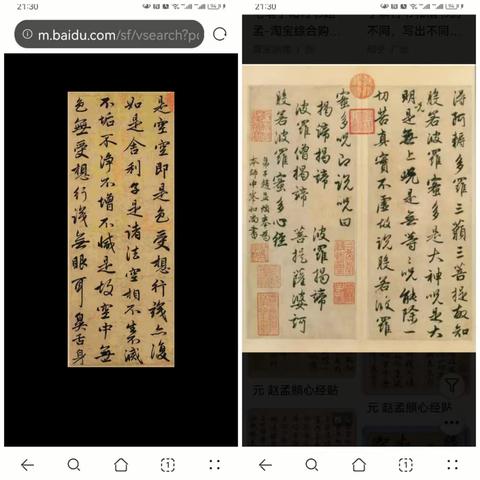 21:30
m.baidu.com/sf/vsearch?p
是空空即是色受想行識亦復
如是舍利子是諸法空相不生不滅
不垢不淨不增不減是故空中無
色無受想行識無眼耳鼻舌身
21:30
孟-淘宝综合购...
不同，写出不同...
得阿耨多羅三藐三菩提故知
般若波羅蜜多是大神呪是大
明呪是無上呪是無等等呪能除一
切苦真實不虛故說般若波羅
蜜多呪即說呪曰
揭諦揭諦 波羅揭諦
波羅僧揭諦 菩提薩婆訶
般若波羅蜜多心經
弟子趙孟頫奉為
本師中峯和尚書
元 赵孟頫心经贴
元 赵孟頫心经贴